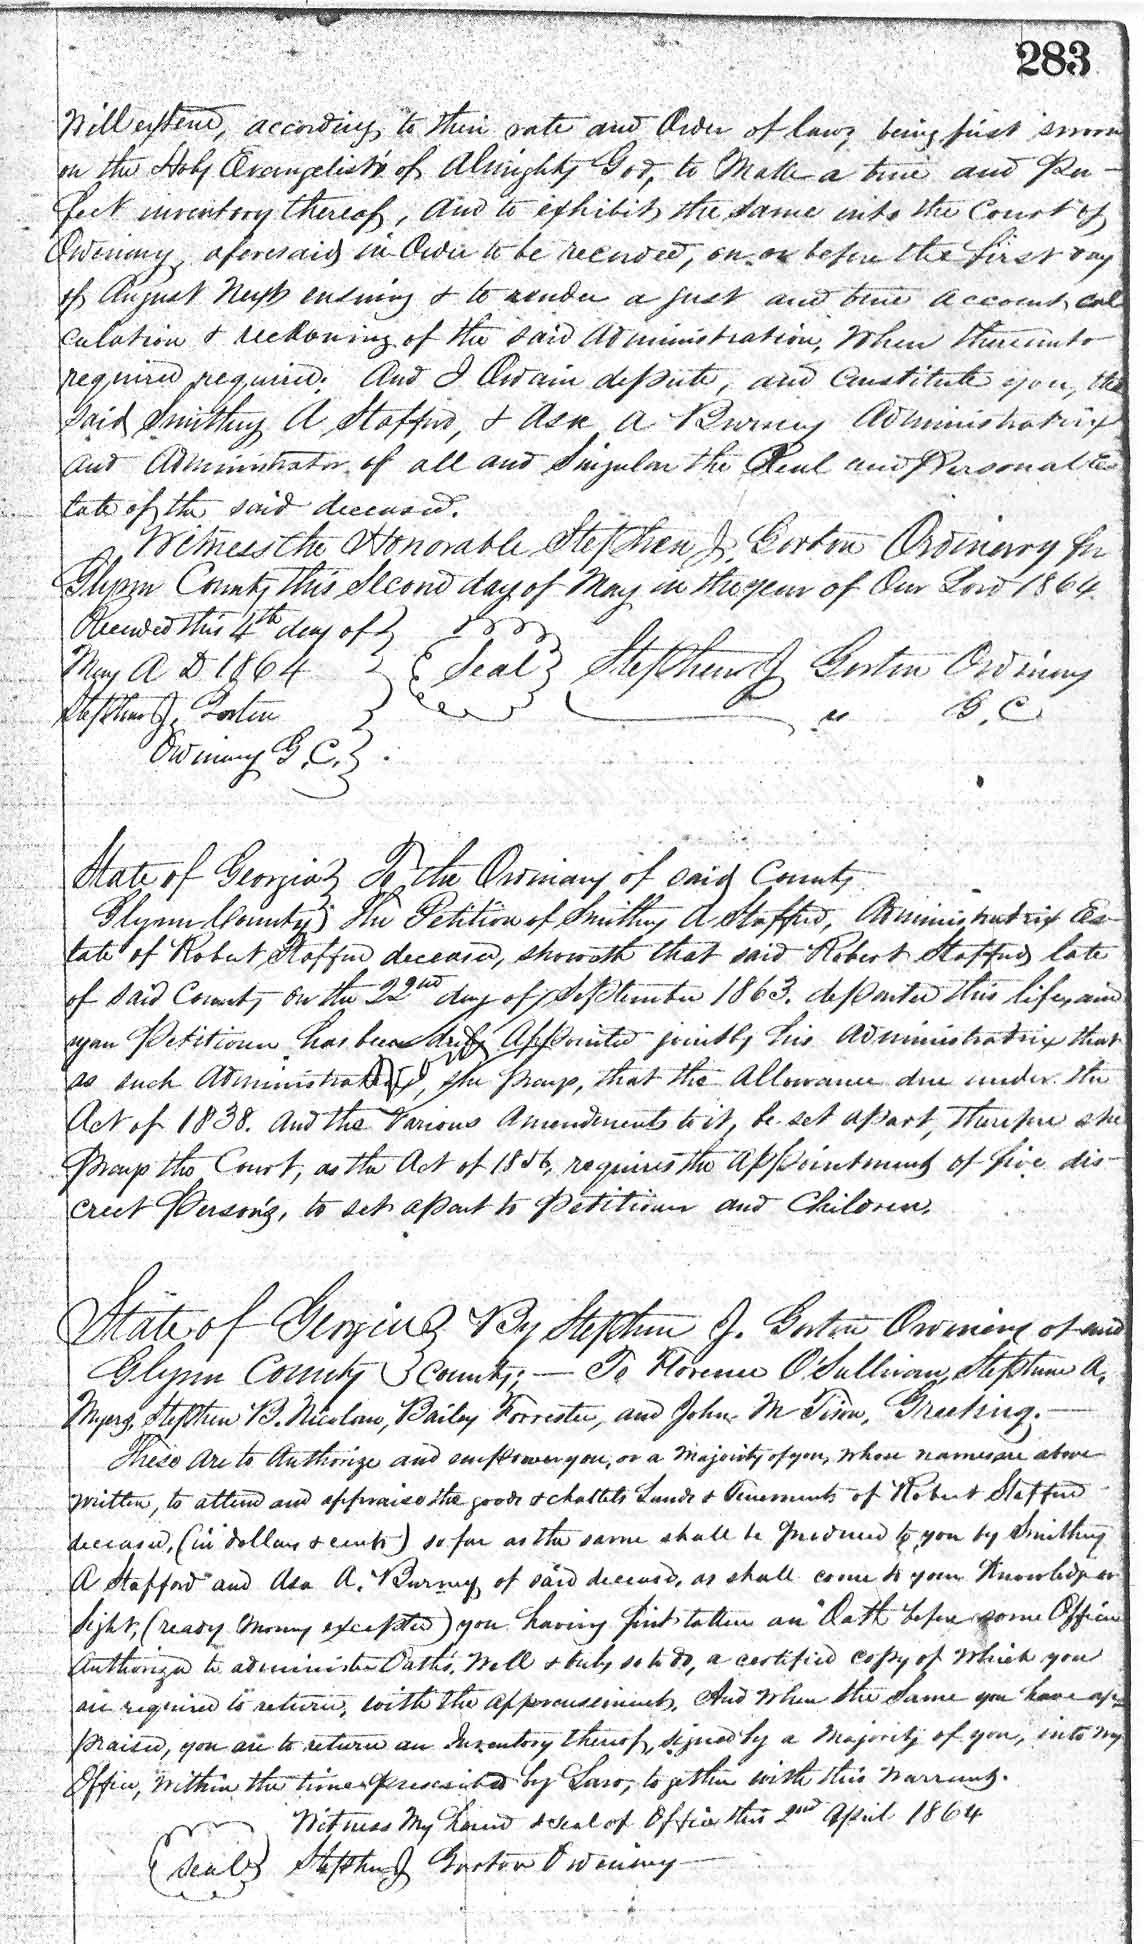 283
Will extend, according to their rate and Order of law, being first sworn
on the Holy Evangelist's of Almighty God, to Make a true and Per-
fect inventory thereof, And to exhibit the same into the Court of
Ordinary, aforesaid in Order to be recorded, on or before the first day
of August Next ensuing & to render a just and true account cal
culation & reckoning of the said Administration, When thereunto
required required. And I Ordain depute, and Constitute you, the
said Smithey A Stafford, & Asa A Burney Administratrix
and Administrator of all and Singular the Real and Personal Es
tate of the said deceased.
Witness the Honorable Stephen J. Gorton Ordinarry for
Glynn County this Second day of May in the year of Our Lord 1864.
Recorded this 4th day of
May A D 1864
Stephen J. Gorton
Ordinary G. C.
Seal
Stephen J Gorton Ordinary
" G. C
State of Georgia To the Ordinary of said County
Glynn County The Petition of Smithey A Stafford, Administratrix Es-
tate of Robert Stafford deceased, showeth that said Robert Stafford late
of said County on the 22nd day of September 1863. departed this life, and
your Petitioner has been duly Appointed jointly his Administratrix that
as such Administratrix, she prays, that the Allowance due under the
Act of 1838. and the Various Amendments to it, be set apart, therefore she
prays the Court, as the Act of 1856, requires the appointment of five dis-
creet Person's, to set apart to petitioner and Children.
State of Georgia By Stephen J. Gorton Ordinary of and
Glynn County County; — To Florence O'Sullivan, Stephen A.
Myers, Stephen B. Nicolau, Bailey Forrester, and John M Tison, Greeting. —
These are to Authorize and empower you, or a Majority of you, whose names are above
written, to attend and appraise the goods & chattels Lands & Tenements of Robert Stafford
deceased, (in dollars & cents) so far as the same shall be produced to you by Smithey
A Stafford and Asa A. Burney of said deceased, as shall come to your Knowledge or
Sight, (ready Money excepted) you having first taken an Oath before some Officer
Authorize to administer Oaths, Well & truly so to do, a certified copy of which you
are required to return, with the appraisement, And when the same you have ap-
praised, you are to return an Inventory thereof, signed by a Majority of you, into my
Office, within the time prescribed by Law, together with this Warrant.
Witness My hand & seal of Office this 2nd April 1864
Seal Stephen J Gorton Ordinary —